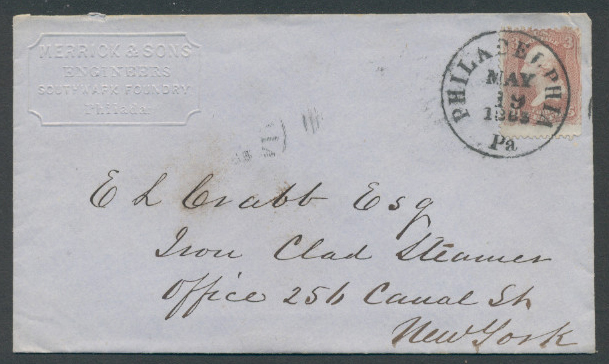 MERRICK & SONS
ENGINEERS
SOUTHWARK FOUNDRY
Philada
PHILADELPHIA
MAY
19
Pa
3
E L Crabb Esq
Iron Clad Steamer
Office 256 Canal St.
New York